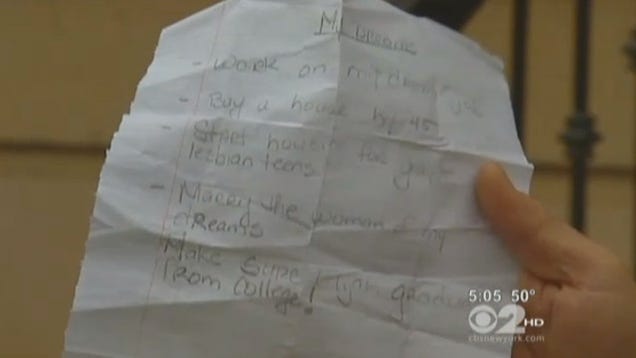 My
- Work on my
- Buy a house by 45
- Start housing for gay &
lesbian teens
- Marry the woman of my
dreams
Make sure Tynn graduate
from college!
5:05 50°
CBS 2 HD
cbsnewyork.com